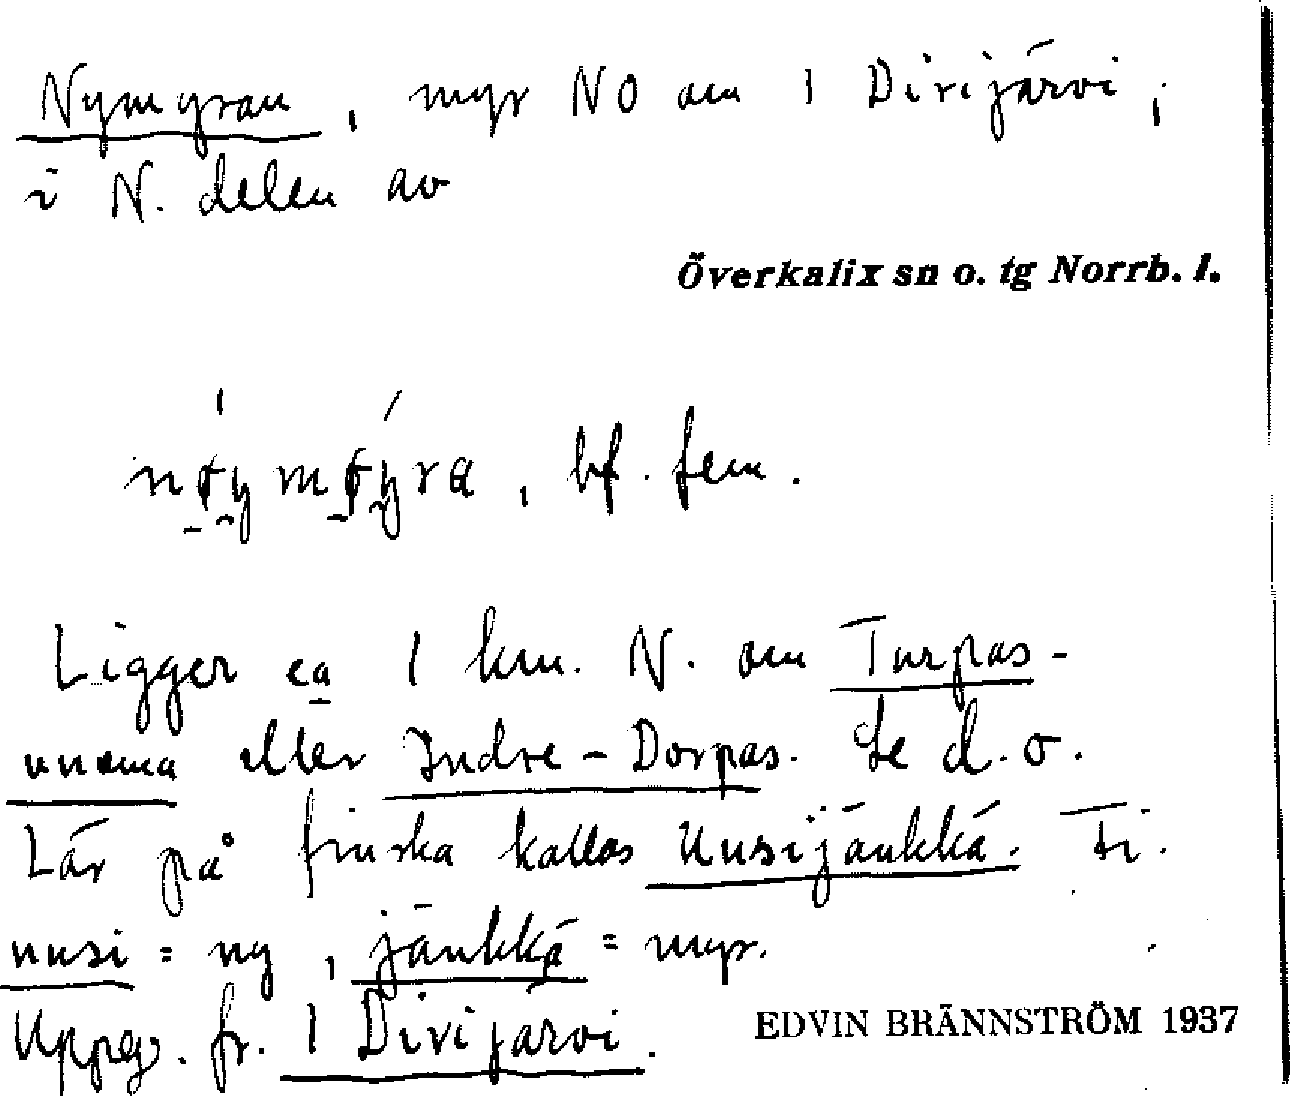 Nymyran, myr NO om 1 Divijärvi,
i N. delen av
Överkalix sn o. tg Norrb. l.
bf. fem.
Ligger ca 1 km. N. om Turpas-
vuoma eller Indre-Dorpas. Se d. o.
Lär på finska kallas Uusijänkkä. Fi.
uusi = ny, jänkkä = myr.
Uppg. fr. 1 Divijärvi.
EDVIN BRÄNNSTRÖM 1937